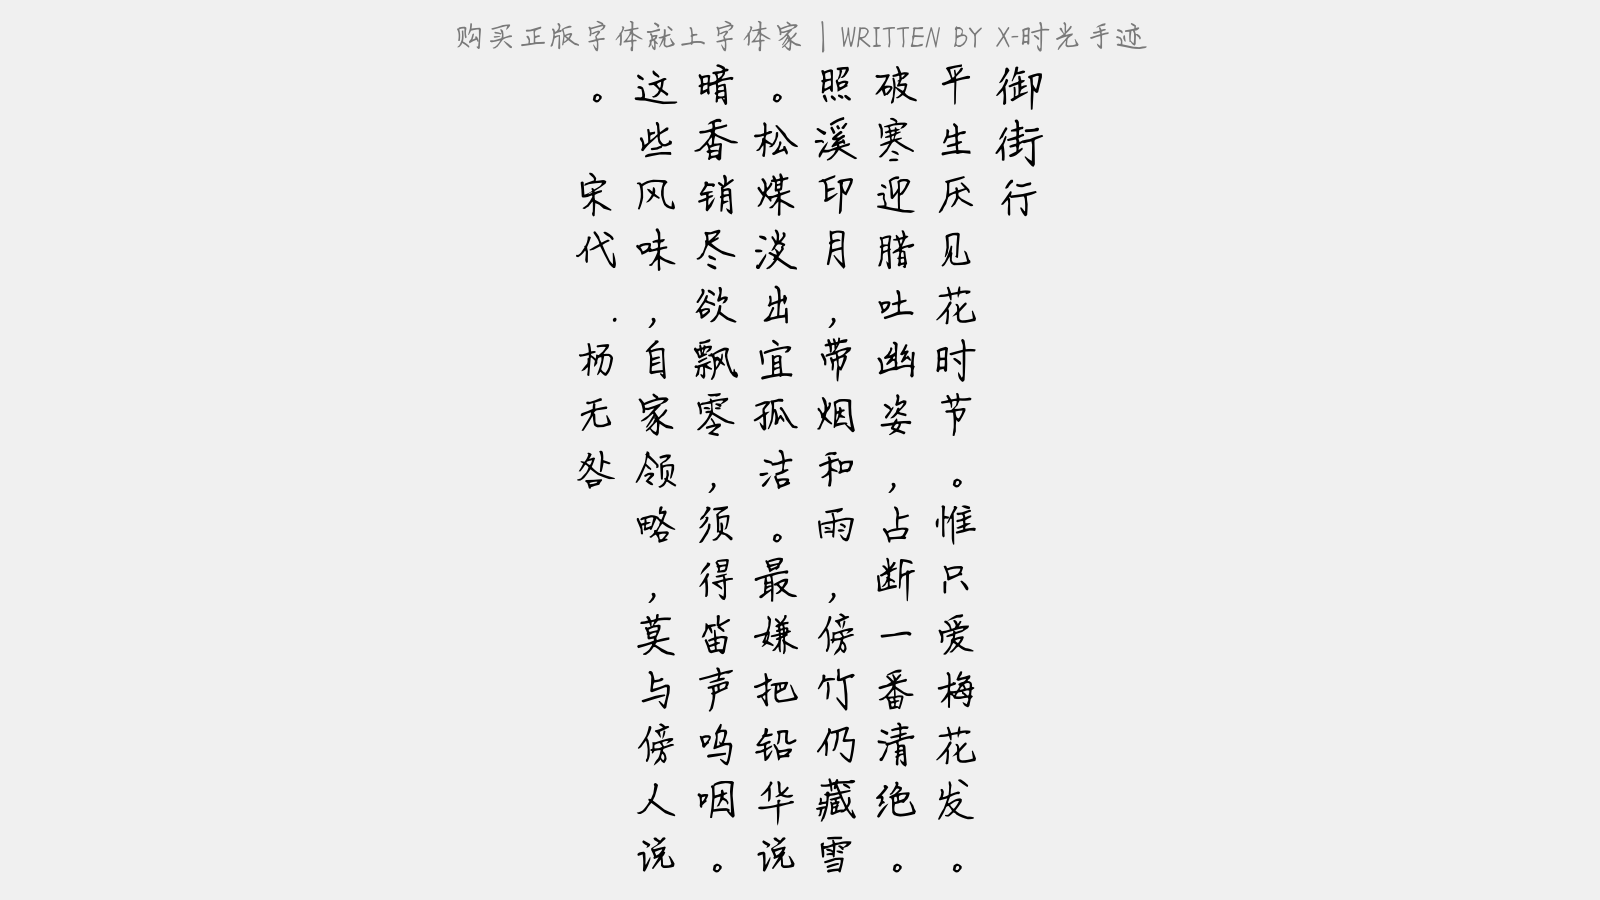 购买正版字体就上字体家 | WRITTEN BY X-时光手迹
御街行
平生厌见花时节。惟只爱梅花发。
破寒迎腊吐幽姿，占断一番清绝。
照溪印月，带烟和雨，傍竹仍藏雪
。松煤淡出宜孤洁。最嫌把铅华说
暗香销尽欲飘零，须得笛声呜咽。
这些风味，自家领略，莫与傍人说
。宋代.杨无咎